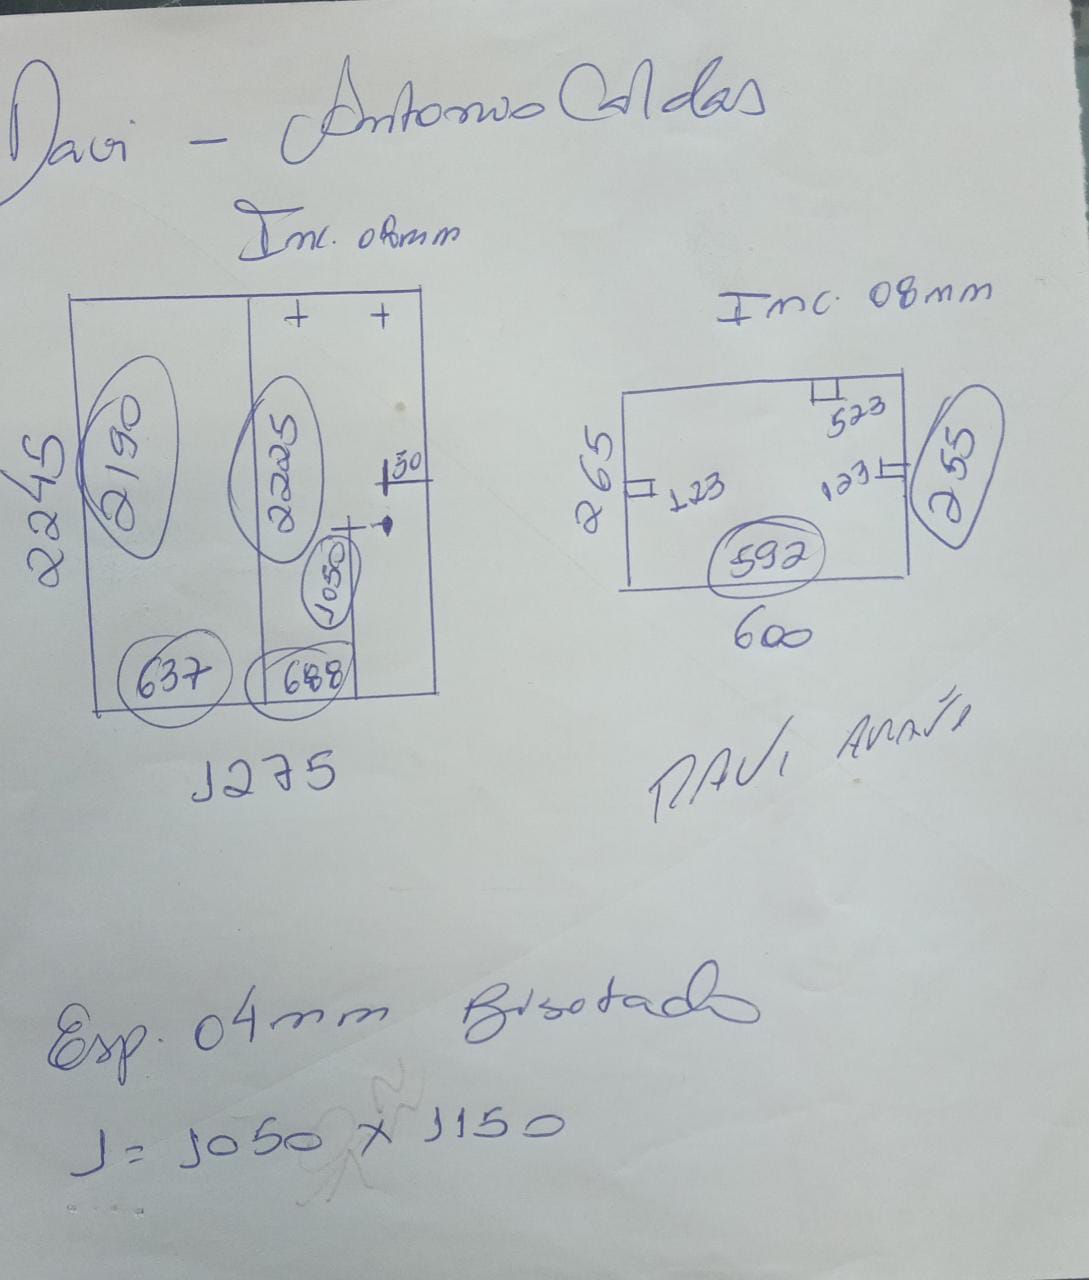 Davi - Antonio Caldas
Inc. 08mm
2245
2190
2225
50
1050
637
688
1275
Inc. 08mm
265
523
123
123
255
592
600
Esp. 04mm Bisotado
1= 1050 x 1150